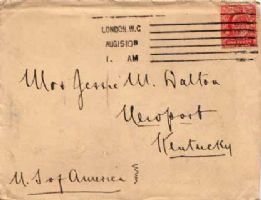 LONDON. W.C
1. AM
Mrs Jessie M. Dalton
Newport
Kentucky
U. S of America